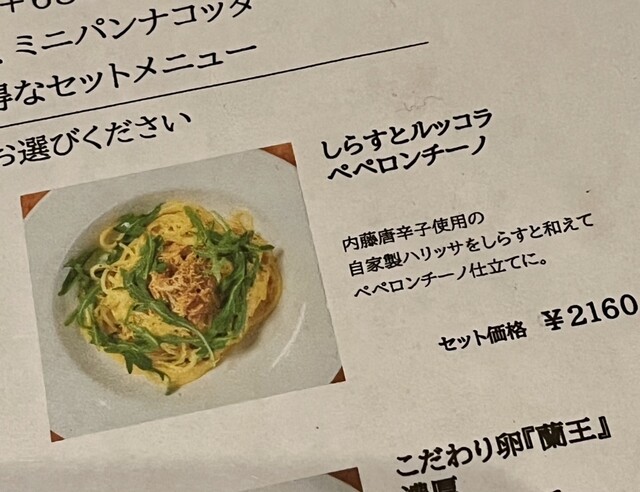 ミニパンナコッタ
得なセットメニュー
お選びください
しらすとルッコラ
ペペロンチーノ
内藤唐辛子使用の
自家製ハリッサをしらすと和えて
ペペロンチーノ仕立てに。
セット価格 ¥2160
こだわり卵『蘭王』
濃厚